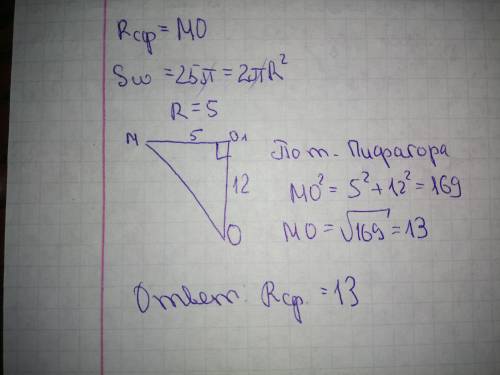 Rсф = МО
Sω = 25π = 2πR²
R = 5
М 5 О₁
12
О
По т. Пифагора
МО² = 5² + 12² = 169
МО = √169 = 13
Ответ: Rсф. = 13